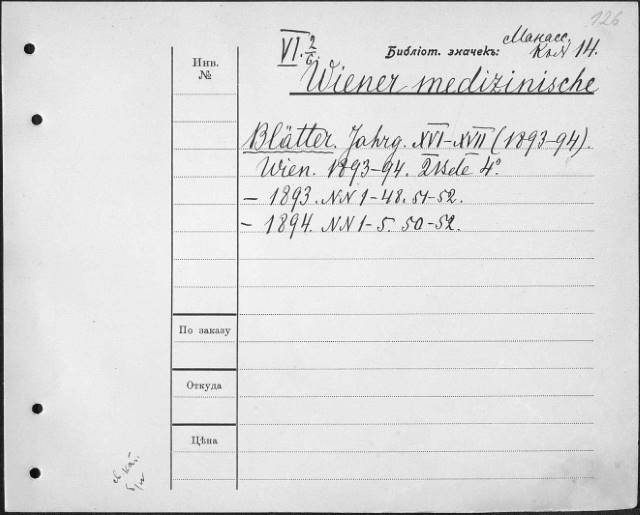 126
Инв.
№
VI. 2/6.
Библіот. значекъ:
Манасс.
14.
Wiener medizinische
Blätter. Jahrg. XVI-XVII (1893-94).
Wien. 1893-94. 2 Bde 4º.
- 1893. NN 1-48. 51-52.
- 1894. NN 1-5. 50-52.
По заказу
Откуда
Цѣна